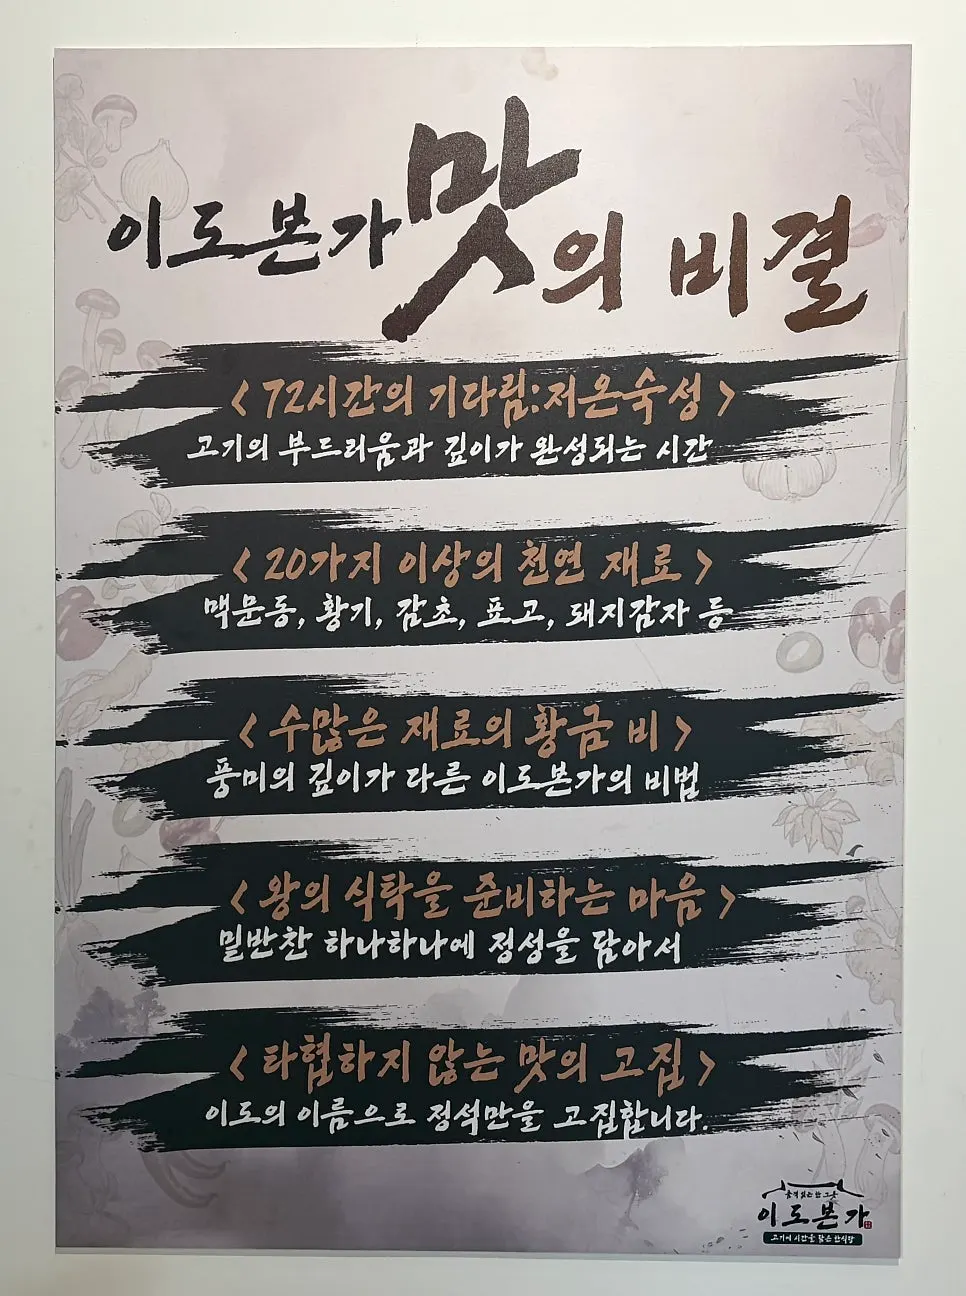 이도본가 맛의 비결
< 72시간의 기다림:저온숙성 >
고기의 부드러움과 깊이가 완성되는 시간
< 20가지 이상의 천연 재료 >
맥문동, 황기, 감초, 표고, 돼지감자 등
< 수많은 재료의 황금 비 >
풍미의 깊이가 다른 이도본가의 비법
< 왕의 식탁을 준비하는 마음 >
밑반찬 하나하나에 정성을 담아서
< 타협하지 않는 맛의 고집 >
이도의 이름으로 정석만을 고집합니다.
품격 있는 한 그릇
이도본가
고기에 시간을 담은 한식당